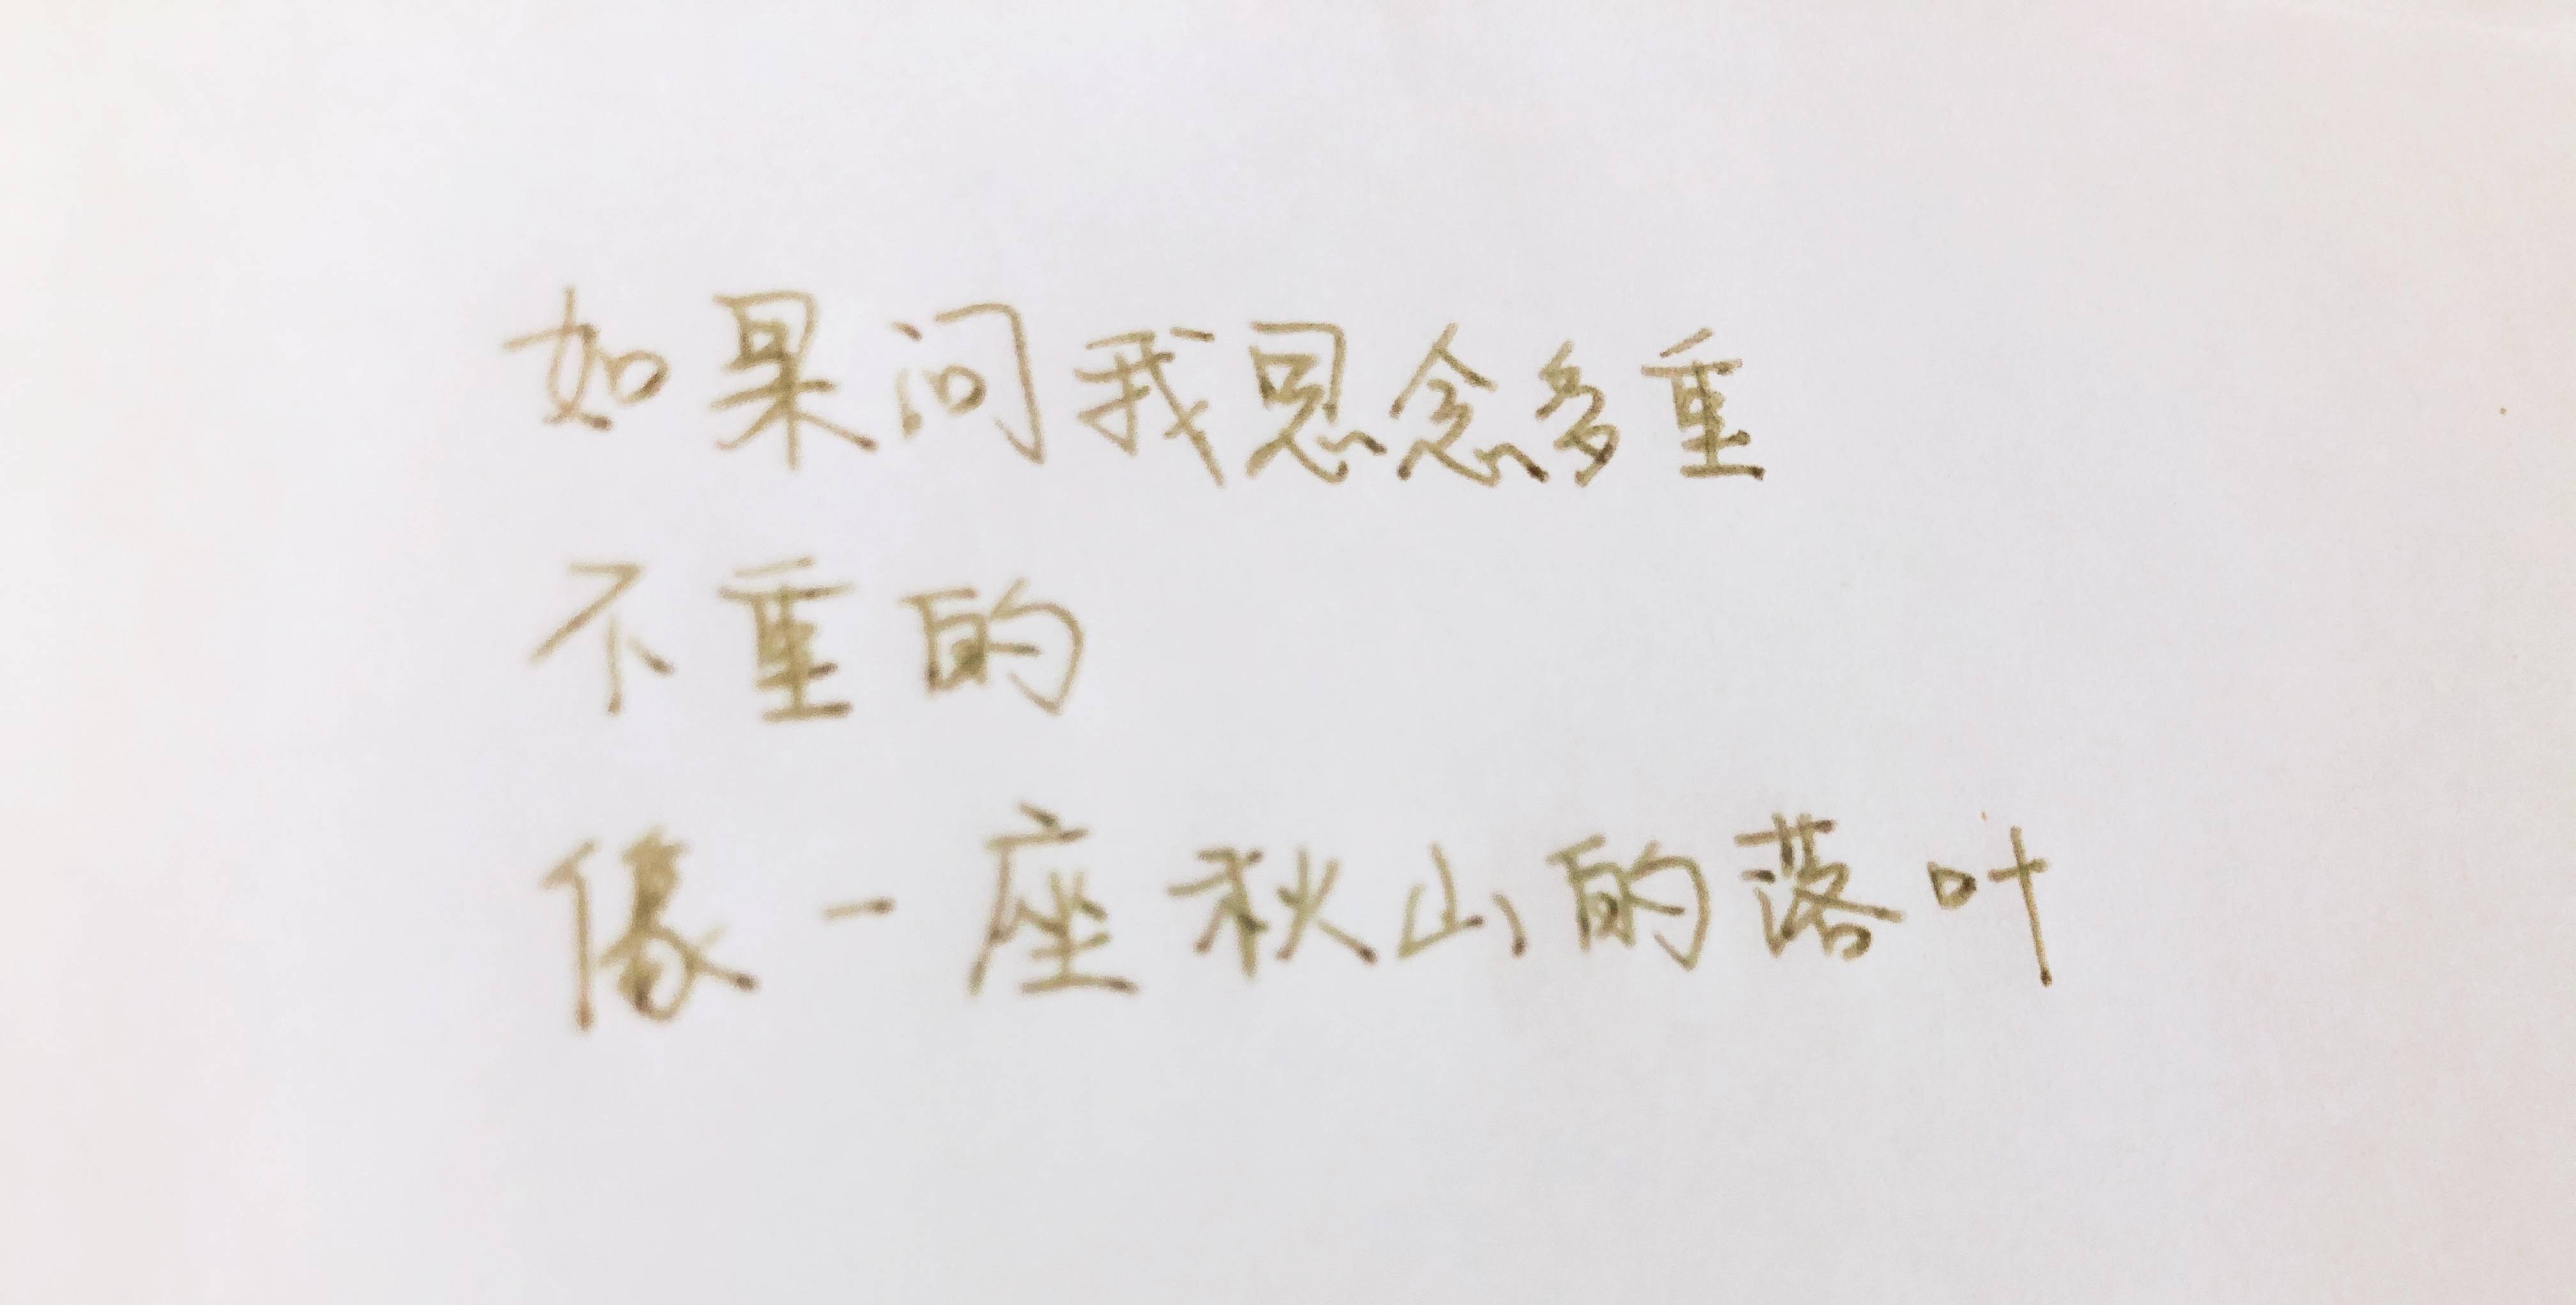 如果问我思念多重
不重的
像一座秋山的落叶